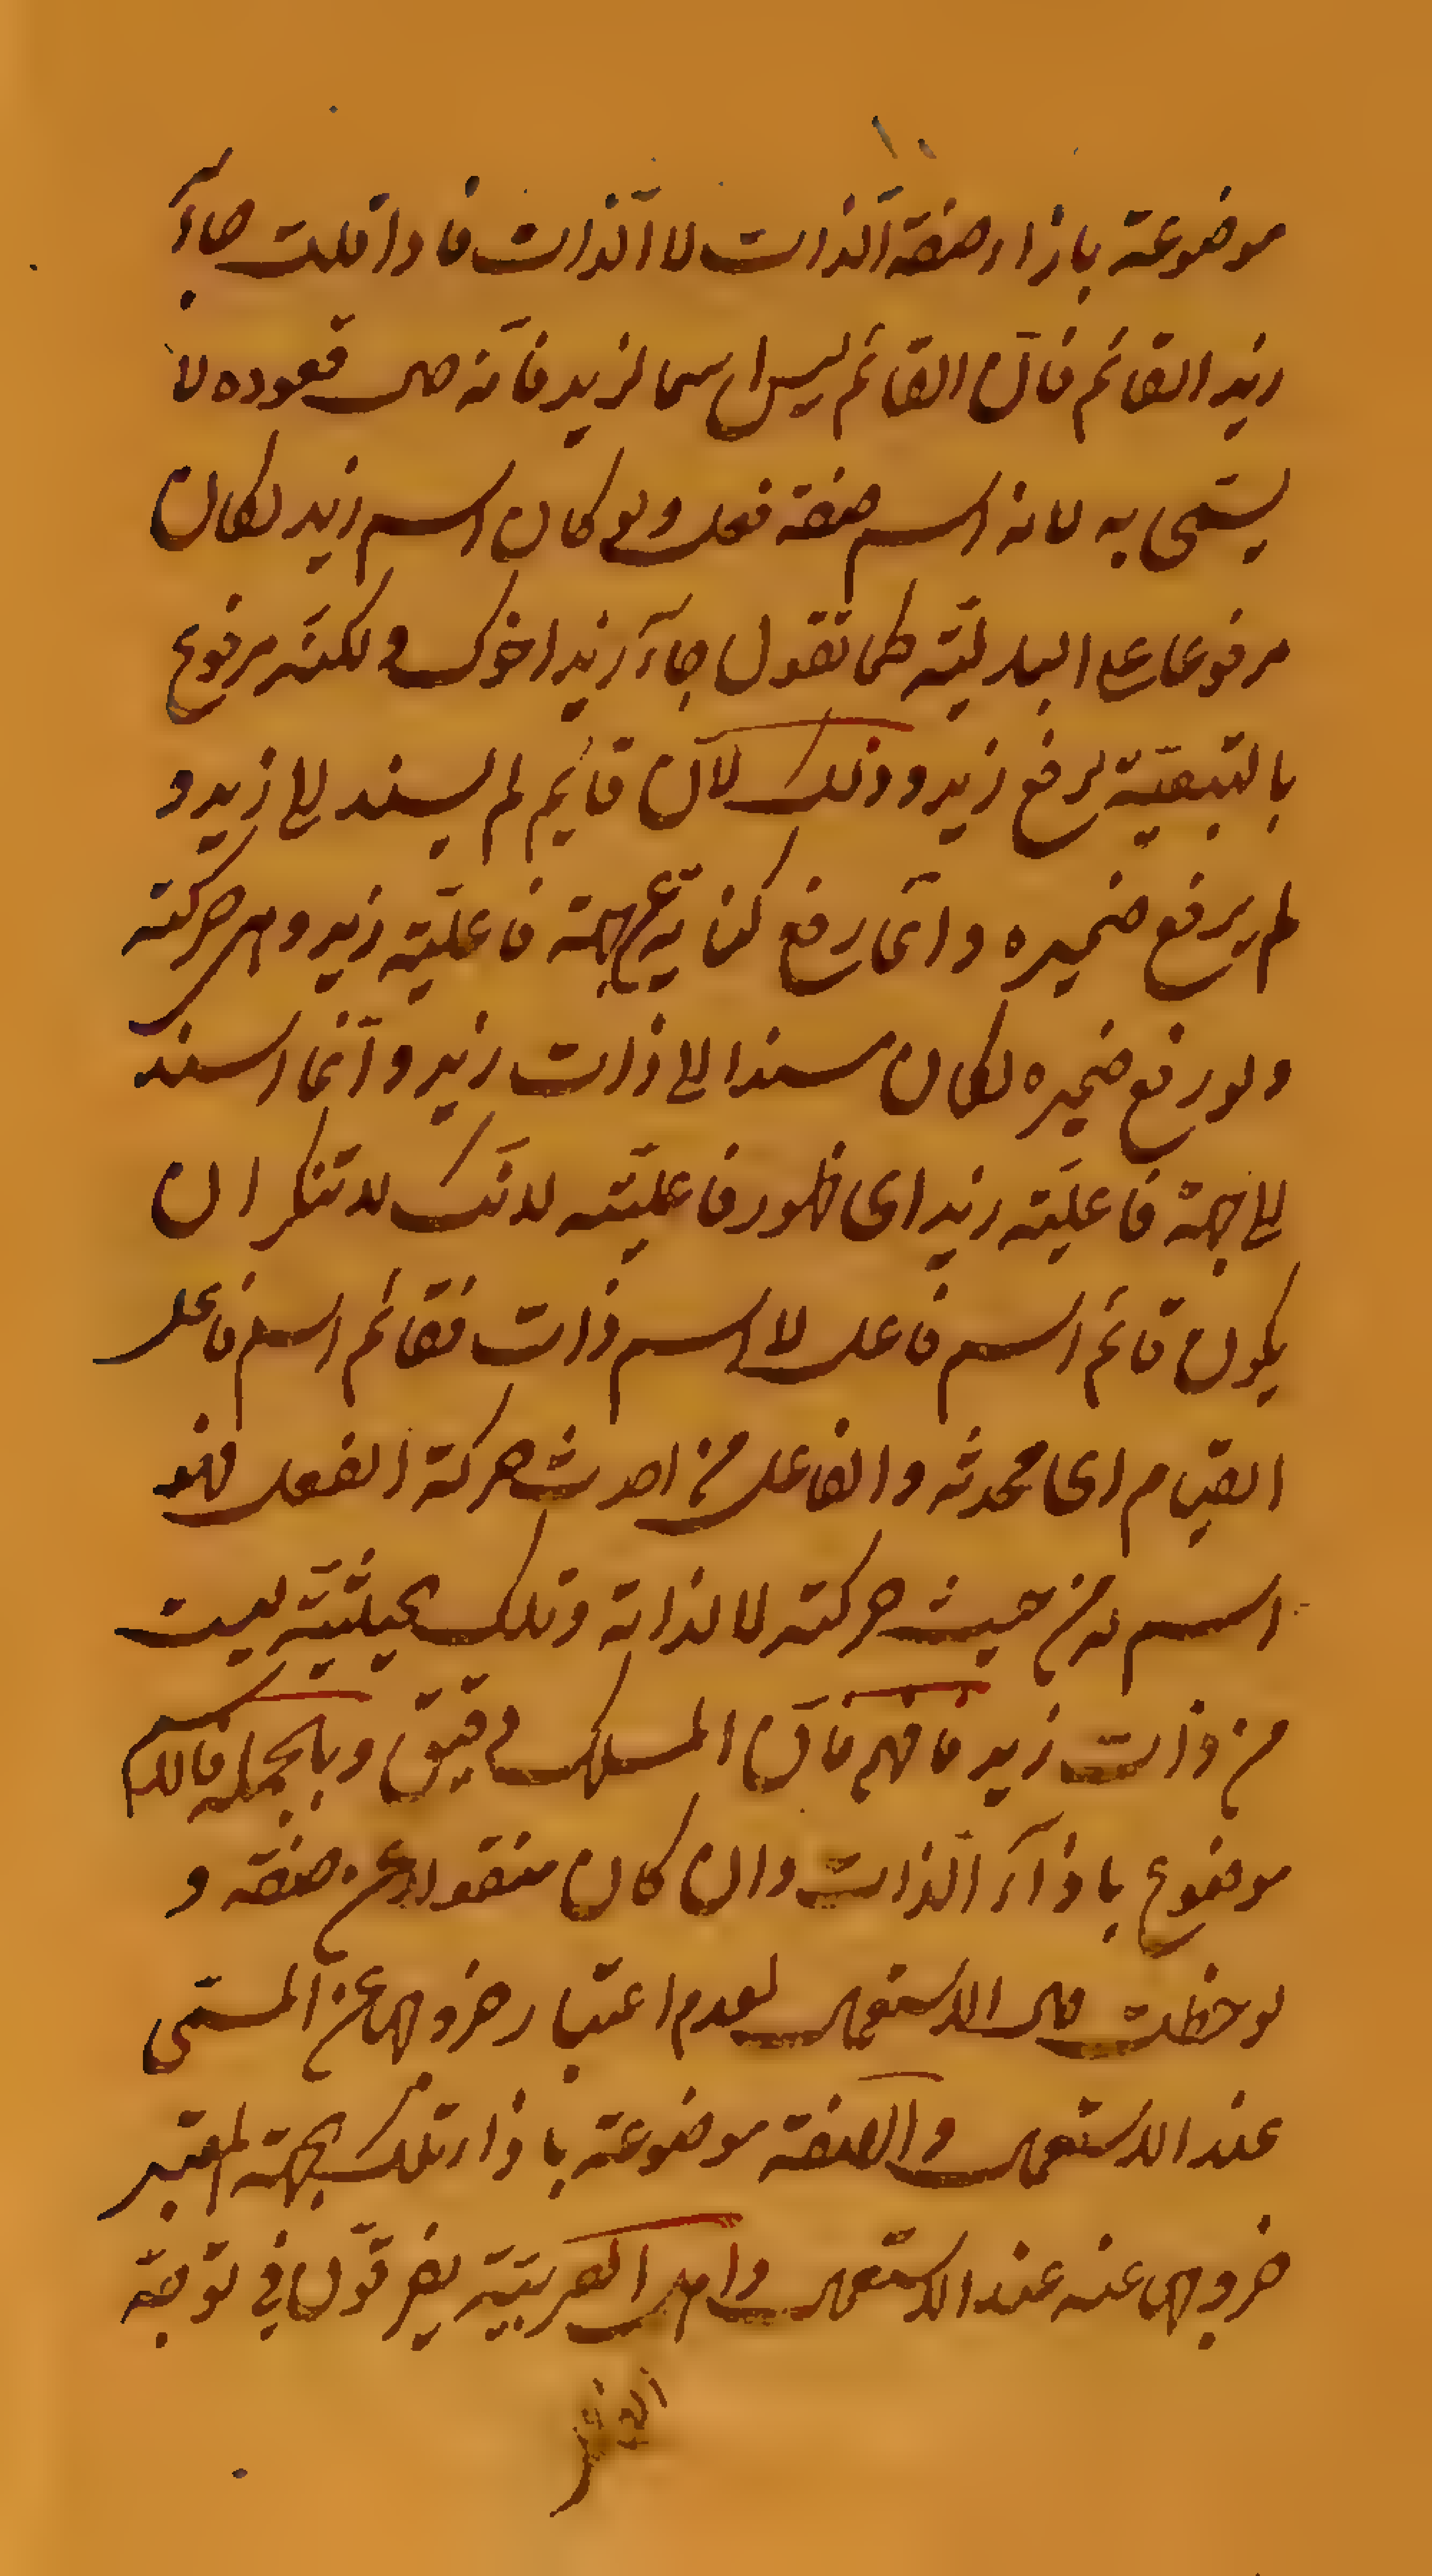 موضوعة بازاء صفة الذات لا الذات فاذا قلت جاء
زيد القائم فانّ القائم ليس اسما لزيد فانّه حال قعوده لا
يسمّى به لانه اسم صفة فعل ولو كان اسم زيد لكان
مرفوعا على البدليّة كما تقول جاء زيد اخوك ولكنّه مرفوع
بالتبعيّة لرفع زيد وذلك لانّ قائم لم يسند الى زيد و
لم يرفع ضميره وانّما رفع كناية عن جهة فاعليّة زيد وهى حركته
ولو رفع ضميره لكان مسندا الى ذات زيد وانّما اسند
الى جهة فاعليّة زيد اى ظهور فاعليّته لانّك لا تنكر ان
يكون قائم اسم فاعل لا اسم ذات فقائم اسم فاعل
القيام اى محدثه والفاعل من احدث حركة الفعل فهو
اسم له من حيث حركته لا لذاته وتلك الحيثيّة ليست
من ذات زيد فافهم فانّ المسلك دقيق وبالجملة فالاسم
موضوع باذاء الذات وان كان منقولا عن صفة و
لوحظت حال الاستعمال لعدم اعتبار خروجها عن المسمّى
عند الاستعمال والصفة موضوعة باذاء تلك الجهة المعتبر
خروجها عنه عند الاستعمال واهل العربيّة يفرقون فى توجّه